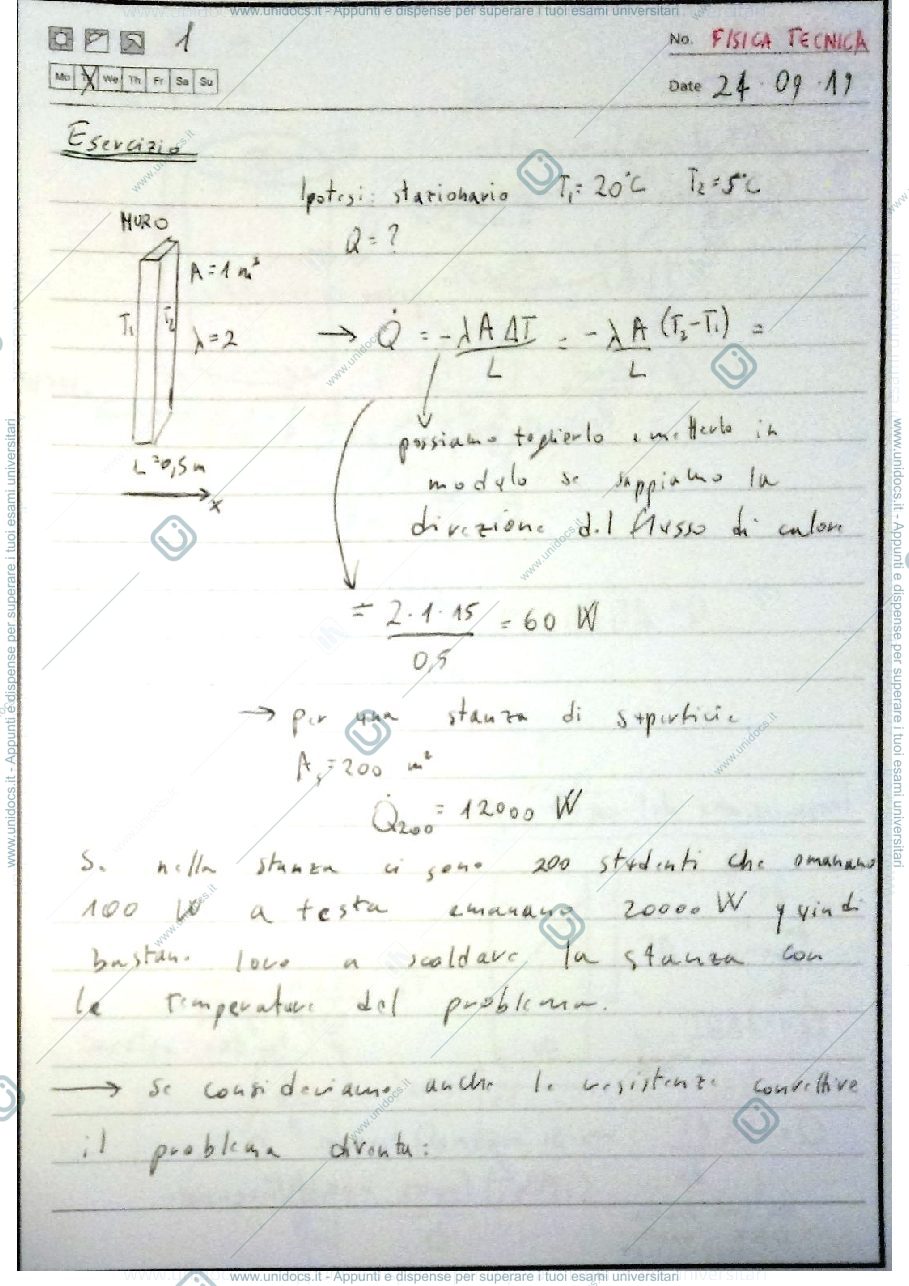 www.unidocs.it - Appunti e dispense per superare i tuoi esami universitari
1
No. FISICA TECNICA
Mo Tu We Th Fr Sa Su
Date 24 · 09 · 19
Esercizio
Ipotesi: stazionario T₁ = 20°C T₂ = 5°C
MURO
Q = ?
A = 1 m²
T₁ T₂ λ = 2
→ Q̇ = -λ A ΔT / L = - λ A / L (T₂-T₁) =
possiamo toglierlo e metterlo in
L = 0,5 m
modulo se sappiamo la
x
direzione del flusso di calore
= 2 · 1 · 15 / 0,5 = 60 W
→ per una stanza di superficie
Aₛ = 200 m²
Q̇₂₀₀ = 12000 W
Se nella stanza ci sono 200 studenti che emanano
100 W a testa emanano 20000 W quindi
bastano loro a scaldare la stanza con
le temperature del problema.
→ se consideriamo anche le resistenze convettive
il problema diventa:
www.unidocs.it - Appunti e dispense per superare i tuoi esami universitari
www.unidocs.it - Appunti e dispense per superare i tuoi esami universitari
www.unidocs.it - Appunti e dispense per superare i tuoi esami universitari